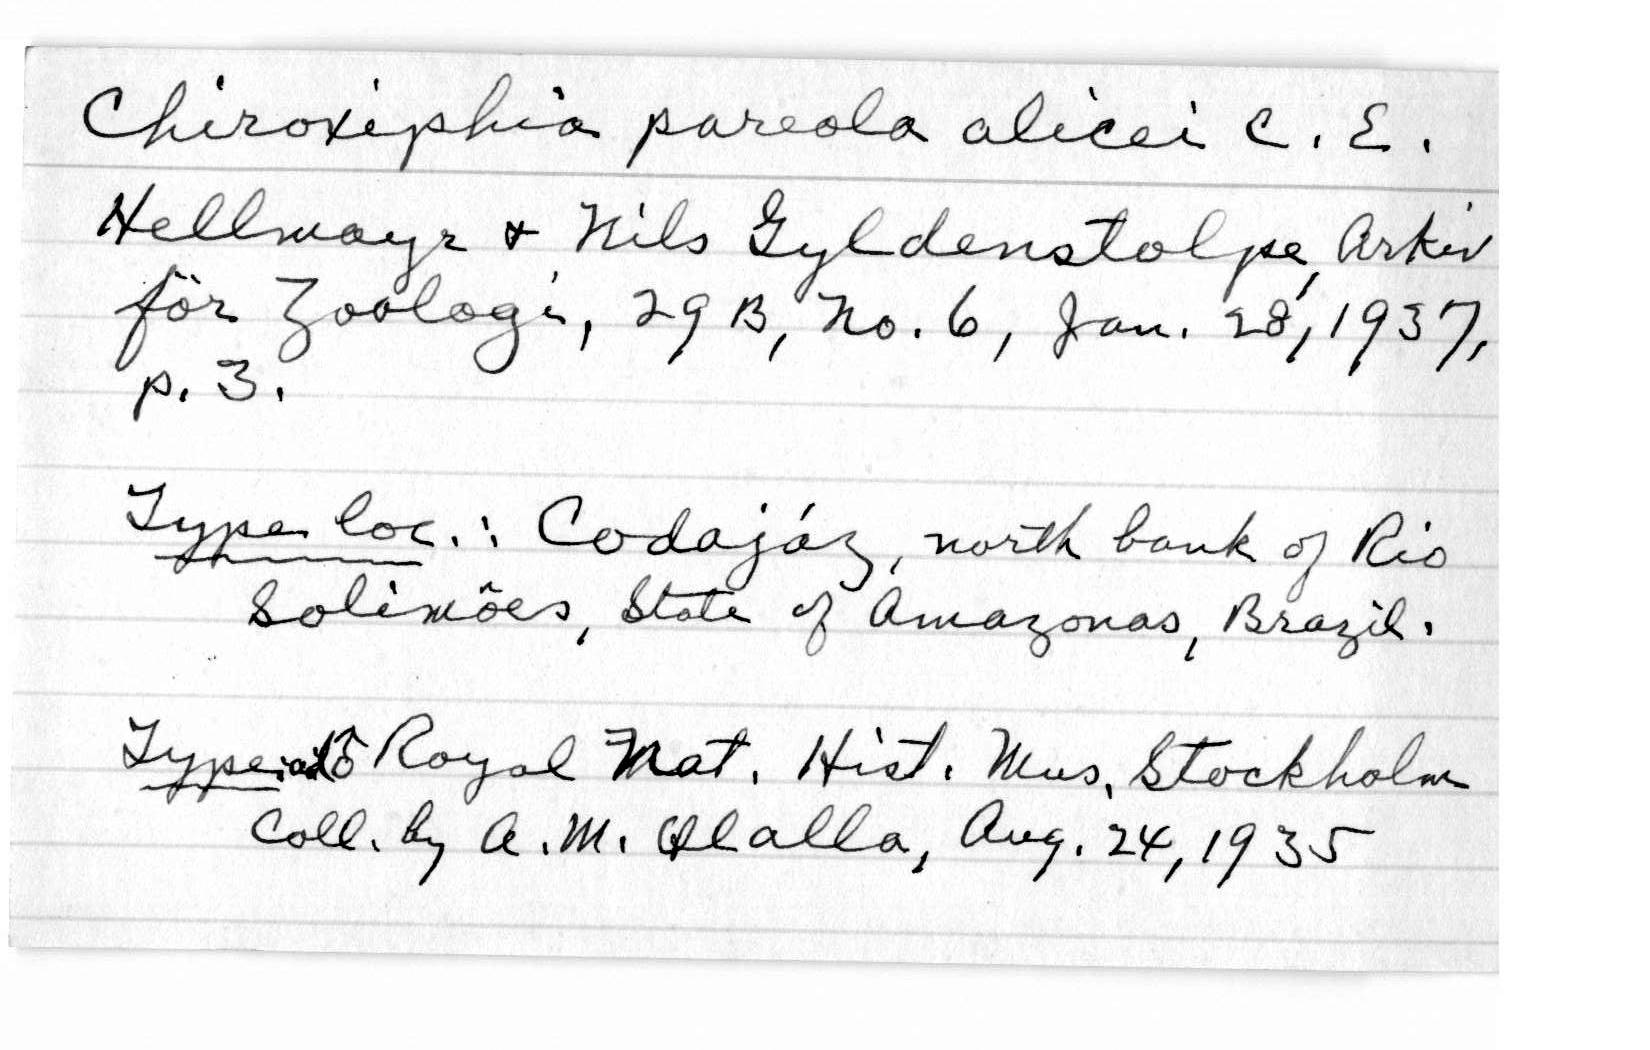 Chiroxiphia pareola alicei C. E.
Hellmayr & Nils Gyldenstolpe, Arkiv
för Zoologi, 29 B, No. 6, Jan. 28, 1937,
p. 3.
Type loc.: Codajáz, north bank of Rio
Solimões, State of Amazonas, Brazil.
Type: ad ♂ Royal Nat. Hist. Mus. Stockholm
Coll. by A. M. Olalla, Aug. 24, 1935